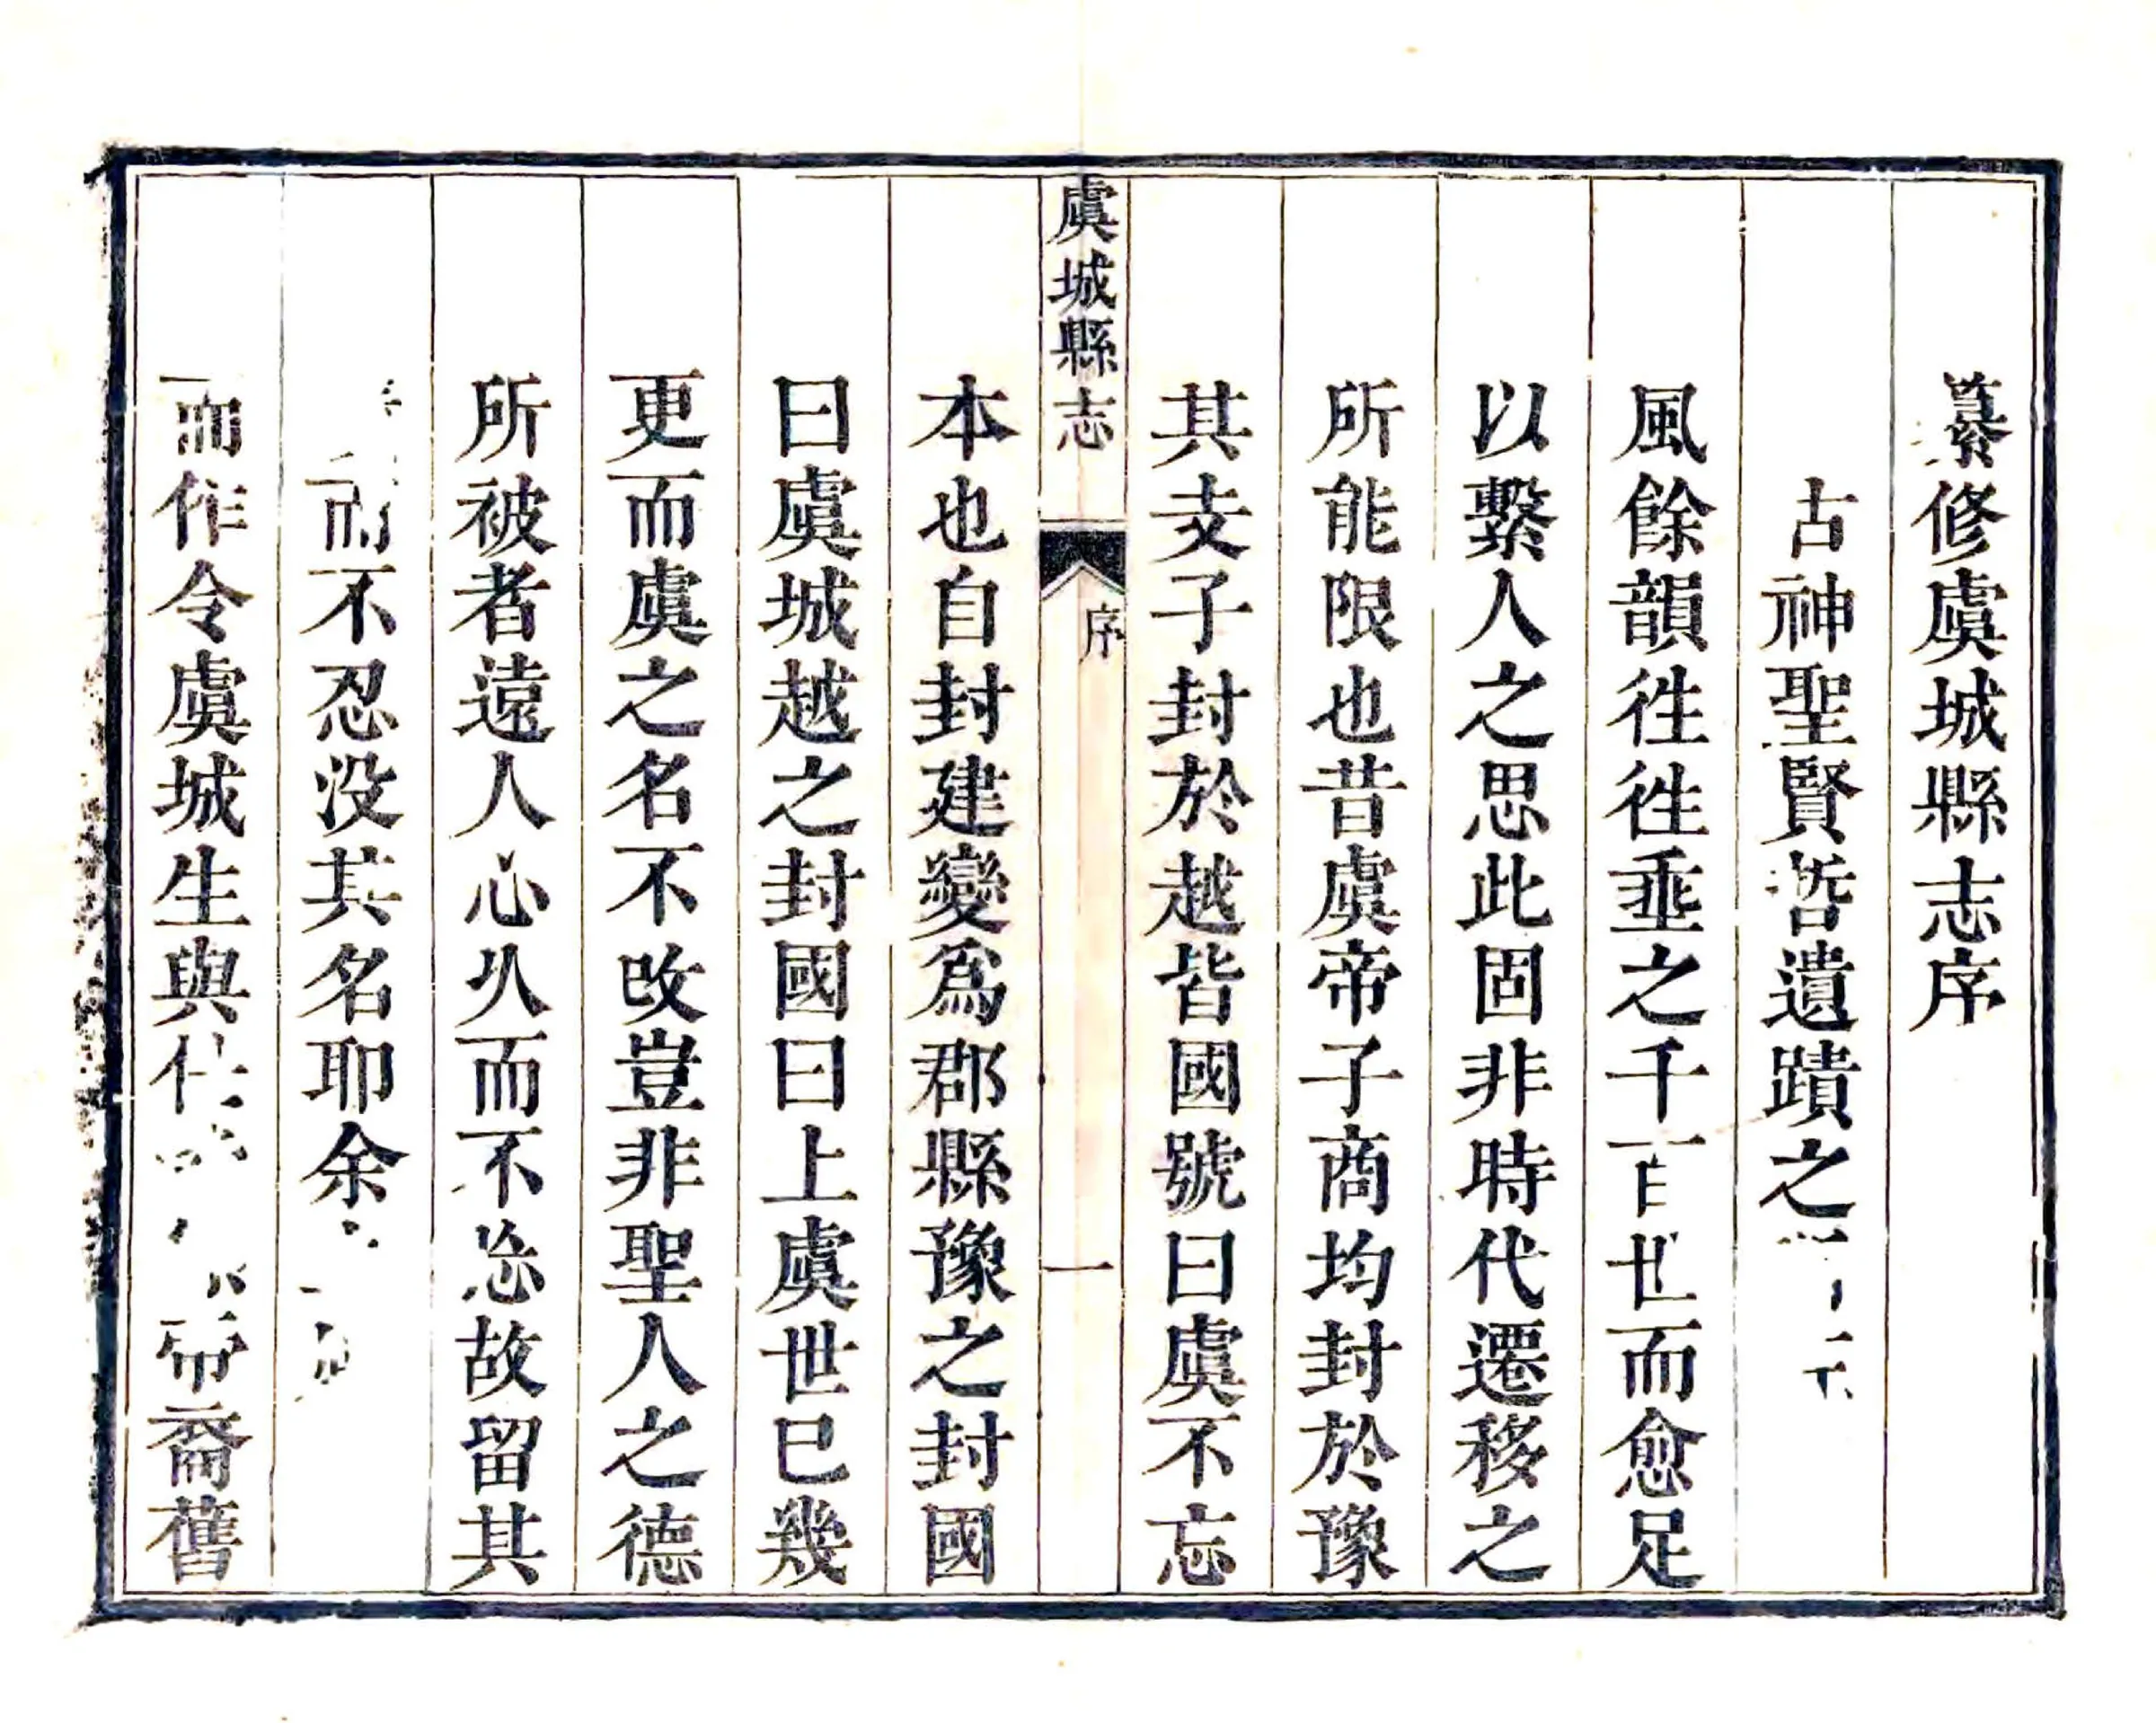 纂修虞城縣志序
古神聖賢哲遺蹟之
風餘韻徃徃垂之千百世而愈足
以繫人之思此固非時代遷移之
所能限也昔虞帝子商均封於豫
其支子封於越皆國號曰虞不忘
虞城縣志
序
一
本也自封建變爲郡縣豫之封國
曰虞城越之封國曰上虞世已幾
更而虞之名不改豈非聖人之德
所被者遠人心久而不忘故留其
而不忍没其名耶余
而作令虞城生與
帝裔舊